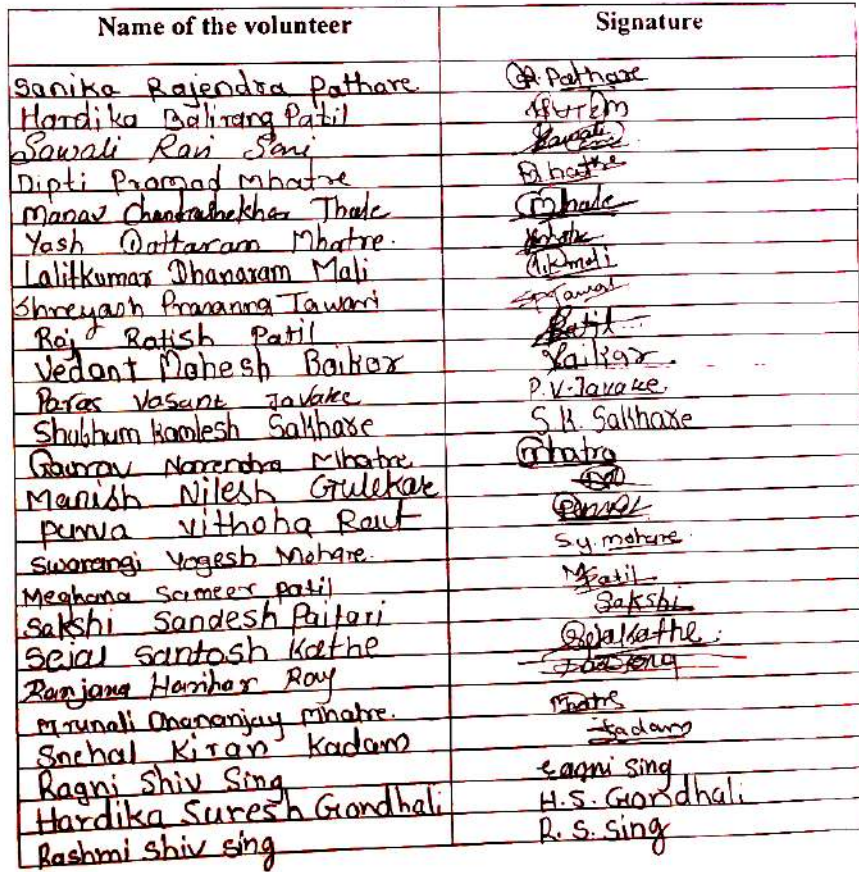 Name of the volunteer Signature
Sanika Rajendra Pathare. Pathare
Hardika Balirang Patil
Sawali Ravi Sani Sawali
Dipti Pramod Mhatre Dhatre
Manav Chandrashekhar Thale Mhale
Yash Dattaram Mhatre.
Lalitkumar Dhanaram Mali l.k mali
Shreyash Prasanna Tawari SpTawari
Raj Ratish Patil Patil
Vedant Mahesh Baikar Vaikar.
Paras Vasant Javake P.V. Javake.
Shubhum Kamlesh Sakhare S.K. Sakhare
Gaurav Narendra Mhatre Mhatre
Manish Nilesh Gulekar
Purva Vithoba Raut
Swarangi Yogesh Mohare. S.y. mohare
Meghana Sameer patil MPatil
Sakshi Sandesh Paitari Sakshi
Sejal Santosh Kathe Sejalkathe.
Ranjana Harihar Roy
Mrunali Dhananjay Mhatre. Mhatre
Snehal Kiran Kadam Kadam
Ragni Shiv Sing Ragni Sing
Hardika Suresh Gondhali H.S. Gondhali
Rashmi Shiv Sing R. S. Sing